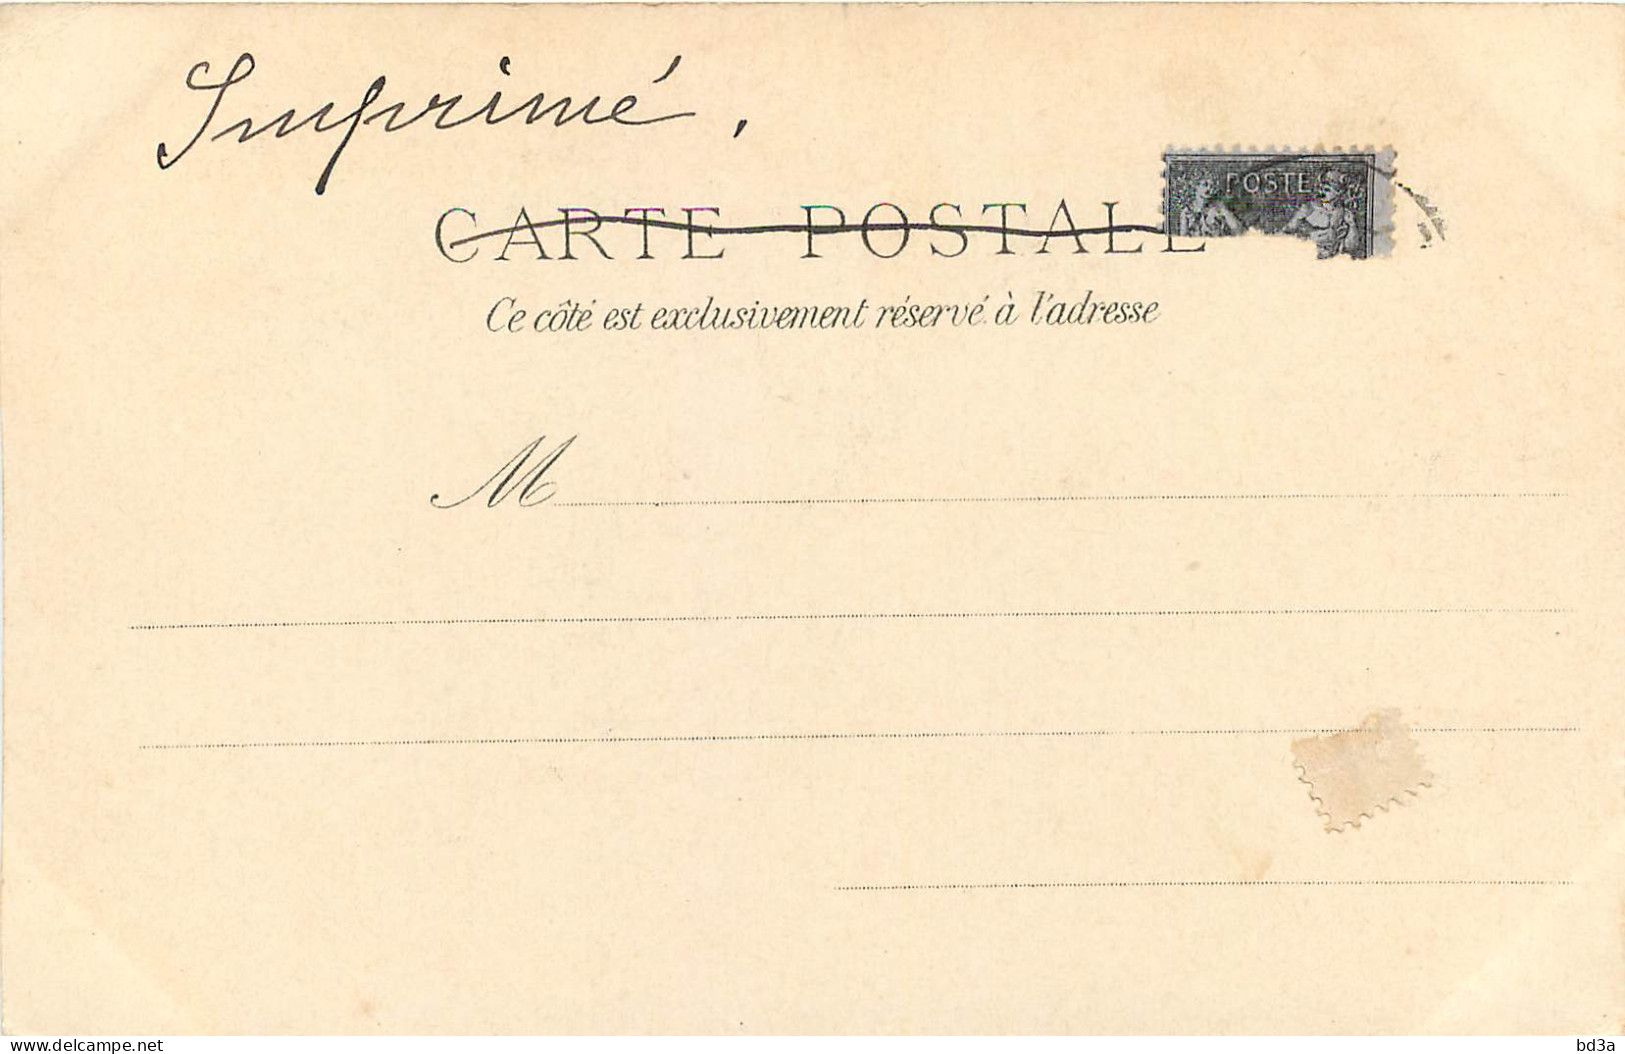 Imprimé.
POSTE
CARTE POSTALE
Ce côté est exclusivement réservé à l'adresse
M
www.delcampe.net
bd3a